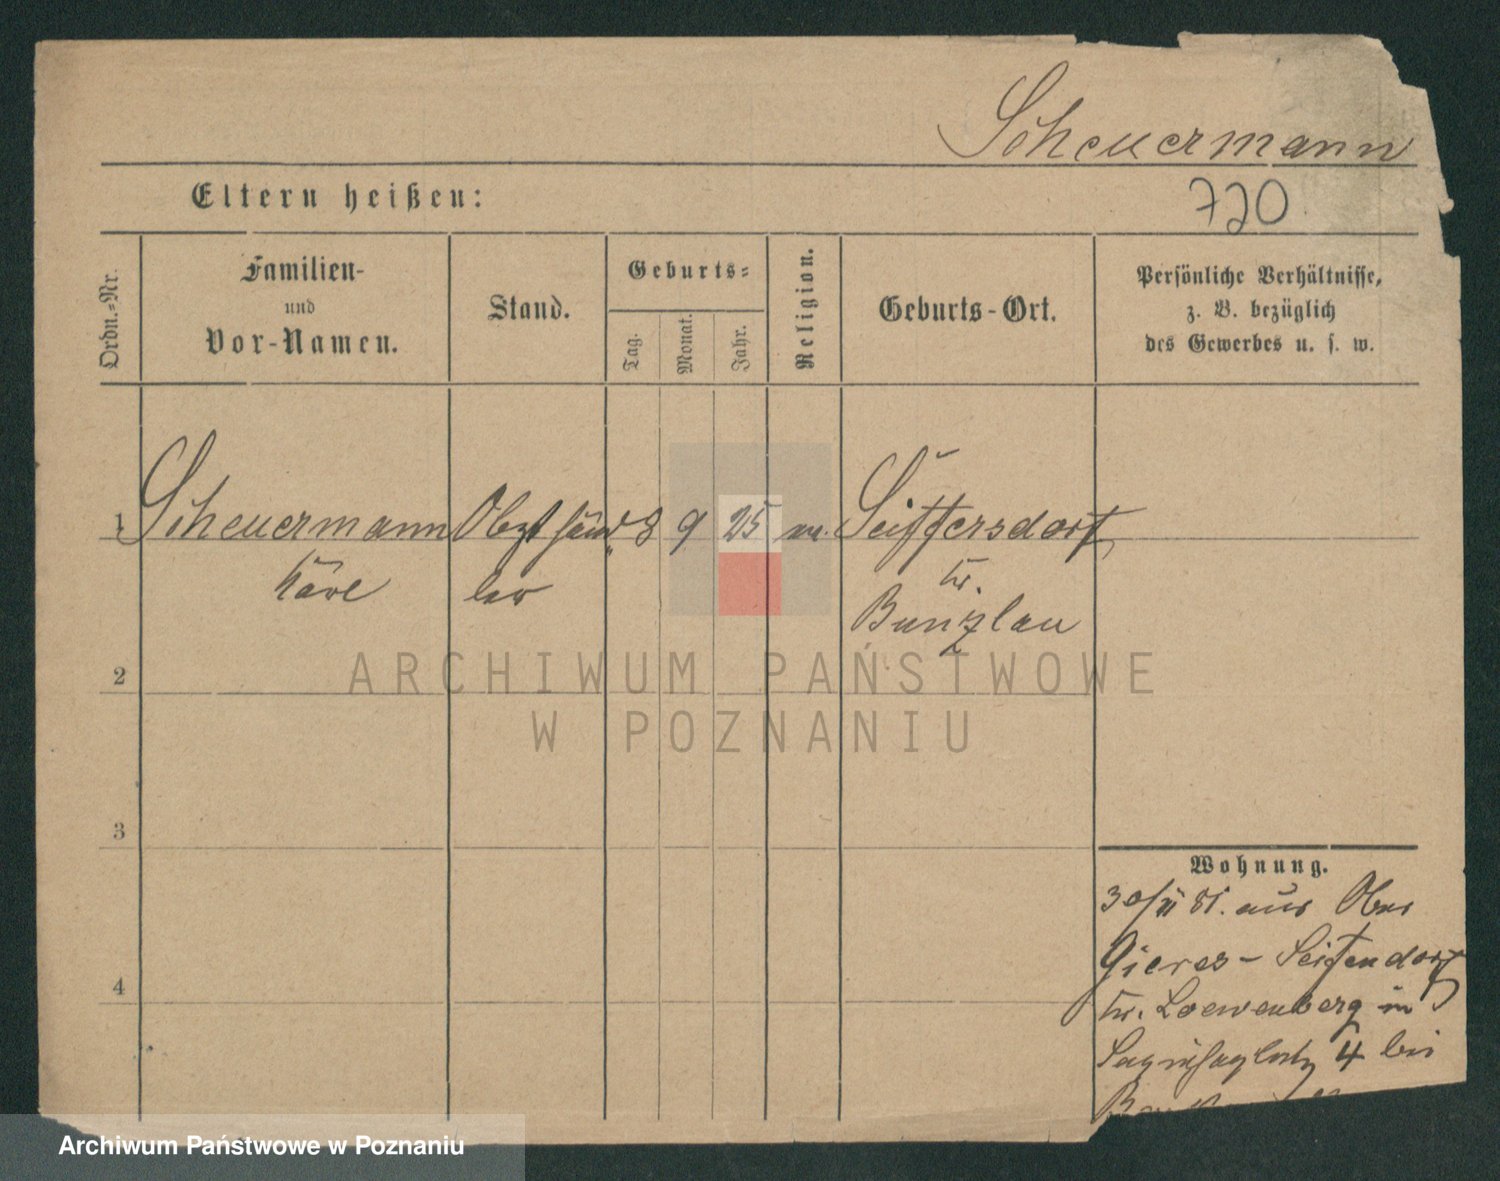 Scheuermann
Eltern heißen:
720
Ordn.-Nr.
Familien-
und
Vor-Namen.
Stand.
Geburts-
Tag.
Monat.
Jahr.
Religion.
Geburts-Ort.
Persönliche Verhältnisse,
z. B. bezüglich
des Gewerbes u. s. w.
1 Scheuermann Obsthänd 8 9 25 Seiffersdorf
Karl ler Kr.
Bunzlau
2
ARCHIWUM PAŃSTWOWE
W POZNANIU
3
Wohnung.
30/ 81. aus Ober
4
Kr. Loewenberg in
4 bei
Archiwum Państwowe w Poznaniu